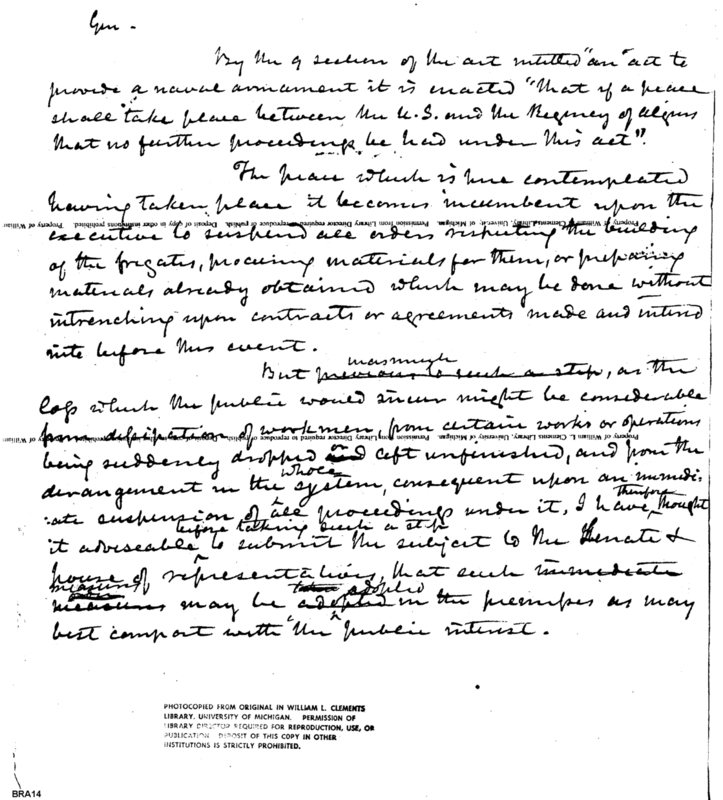 Gen -
By the 9 section of the act intitled "an act to
provide a naval armament it is enacted "that if a peace
shall take place between the U.S. and the Regency of Algiers
that no further proceedings be had under this act".
The peace which is here contemplated
having taken place it becomes incumbent upon the
Property of William L. Clements Library, University of Michigan. Permission from Library Director required to reproduce or publish. Deposit of copy in other institutions prohibited. Property of William
executive to suspend all orders respecting the building
of the frigates, procuring materials for them, or preparing
materials already obtained which may be done without
intrenching upon contracts or agreements made and intered
into before this event.
inasmuch
But previous to such a step, as the
loss which the public would incur might be considerable
Property of William L. Clements Library, University of Michigan. Permission from Library Director required to reproduce
from dissipation of workmen, from certain works or operations
being suddenly dropped and left unfinished, and from the
whole
derangement in the system, consequent upon an immedi-
therefore
ate suspension of all proceedings under it, I have thought
before taking such a step
it adviseable to submit the subject to the Senate &
house of representatives, that such immediate
measures adopted
measures may be adopted in the premises as may
best comport with the public interest.
PHOTOCOPIED FROM ORIGINAL IN WILLIAM L. CLEMENTS
LIBRARY. UNIVERSITY OF MICHIGAN. PERMISSION OF
LIBRARY DIRECTOR REQUIRED FOR REPRODUCTION, USE, OR
PUBLICATION. DEPOSIT OF THIS COPY IN OTHER
INSTITUTIONS IS STRICTLY PROHIBITED.
BRA14